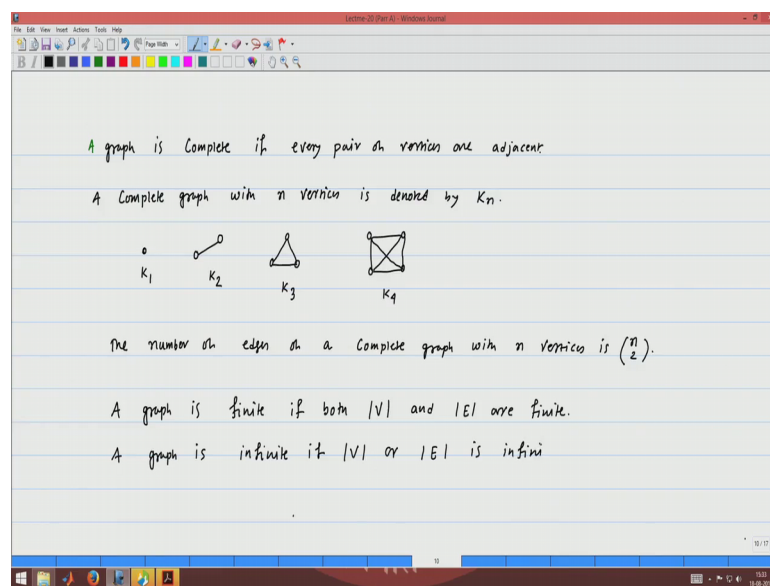 Lecture-20 (Part A) - Windows Journal
File Edit View Insert Actions Tools Help
Page Width
B I
A graph is Complete if every pair of vertices are adjacent.
A Complete graph with n vertices is denoted by Kn.
K1 K2 K3 K4
The number of edges of a Complete graph with n vertices is (n 2).
A graph is finite if both |V| and |E| are finite.
A graph is infinite if |V| or |E| is infini
10/17
10
15:03